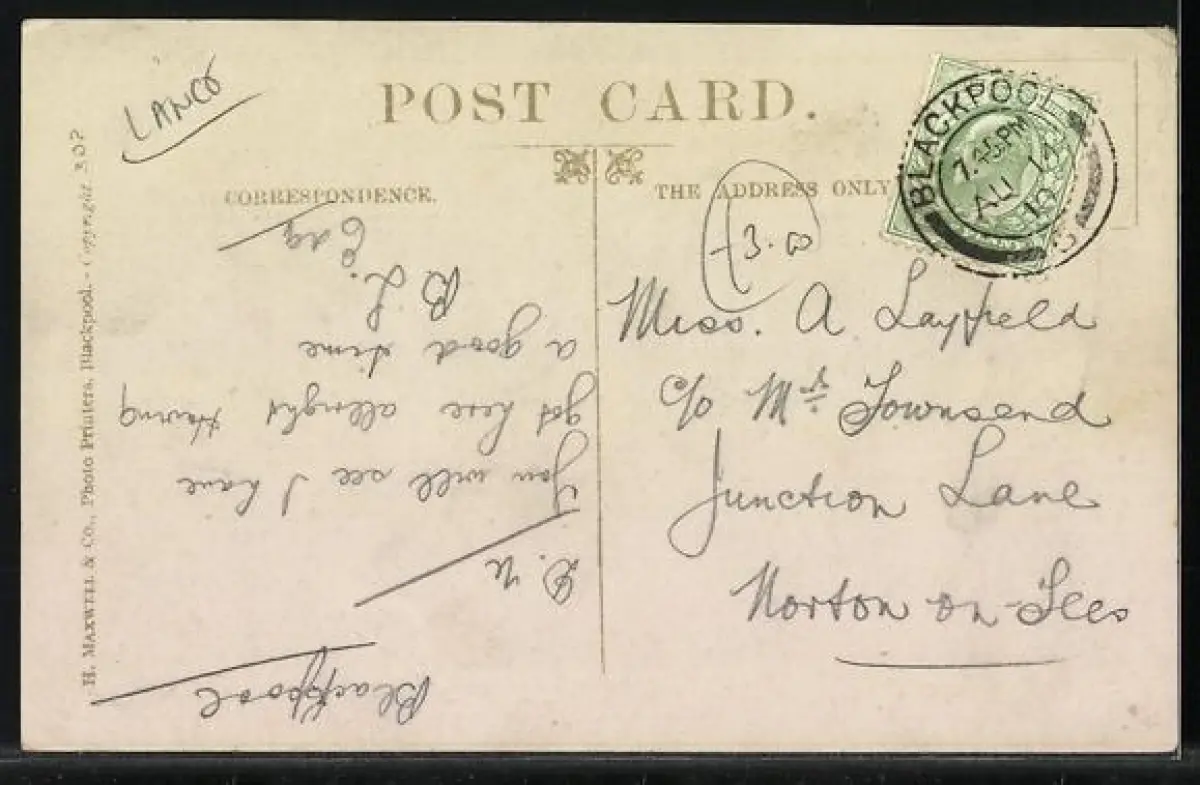 LANCS
POST CARD.
CORRESPONDENCE.
THE ADDRESS ONLY
BLACKPOOL
7.45PM
AU 14
10
3.
Miss. A Layfield
c/o Mrs Townsend
Junction Lane
Norton-on-Tees
Blackpool
D. N
You will see I have
got here allright Having
a good time
B L.
H. MAXWELL & Co., Photo Printers, Blackpool.-Copyright. 307